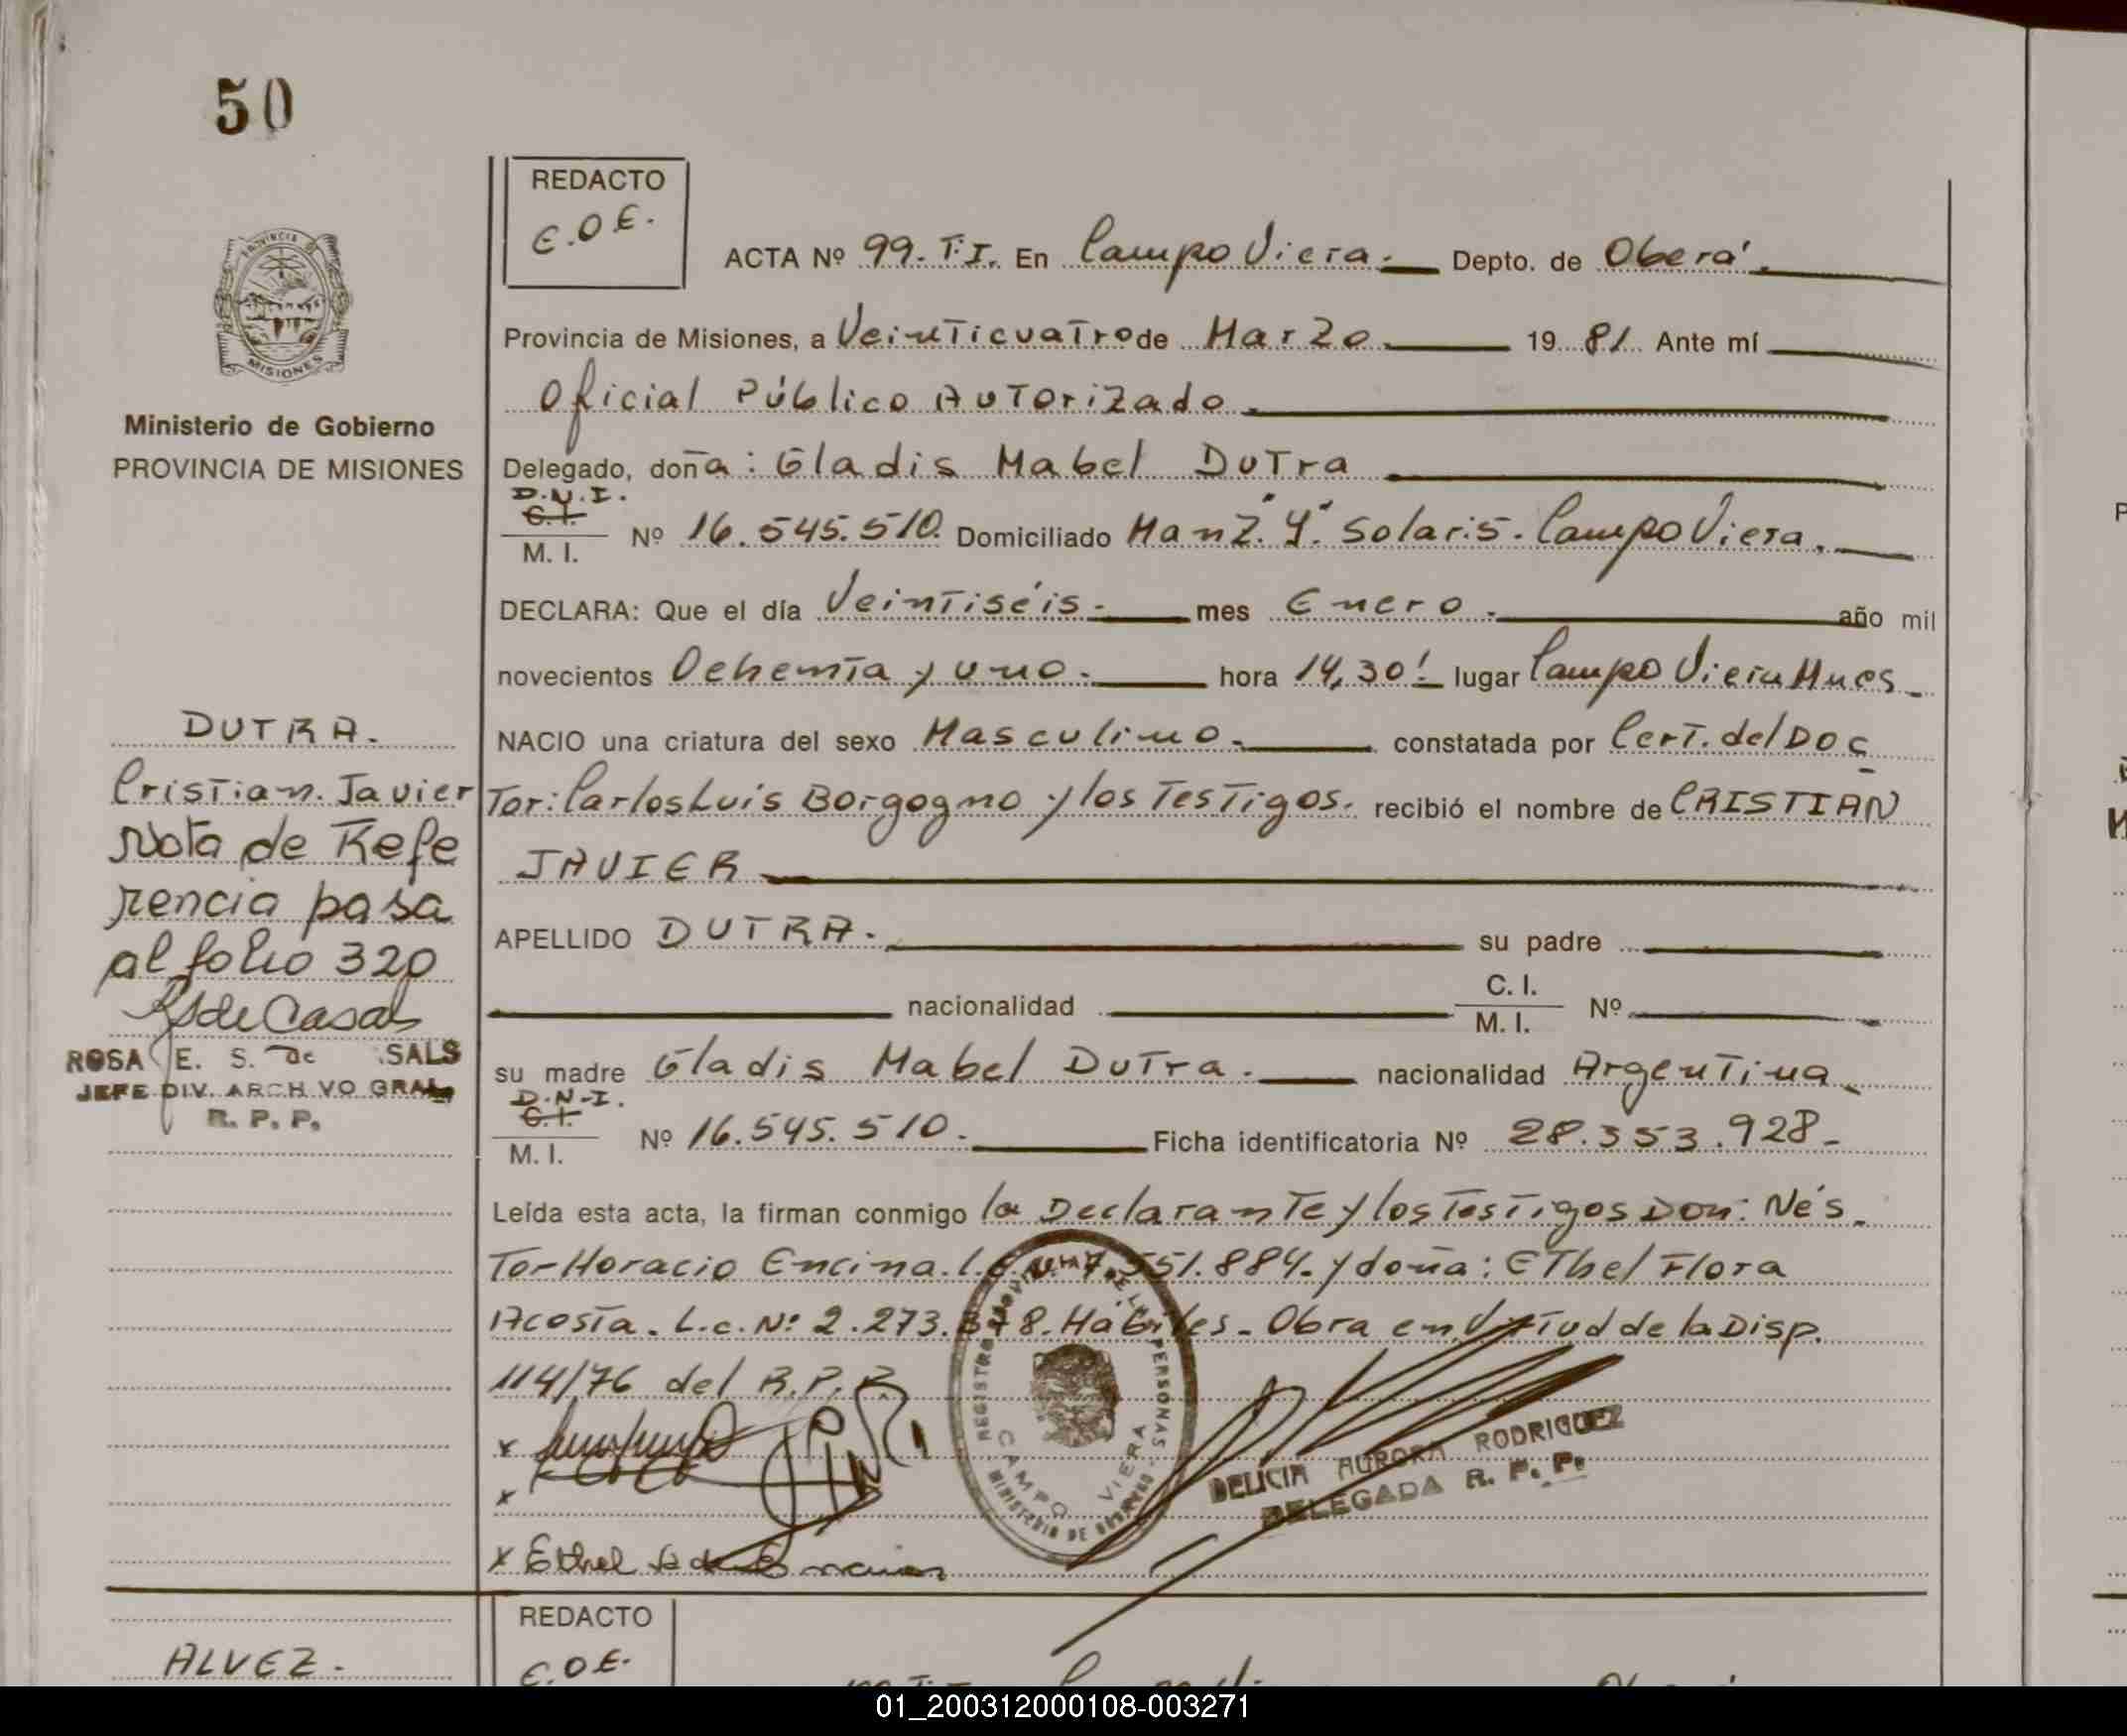 50
REDACTO
E.O.E.
ACTA Nº 99. T.I. En Campo Viera. Depto. de Oberá.
PROVINCIA DE
MISIONES
Provincia de Misiones, a Veinticuatro de Marzo. 19 81. Ante mí
Oficial Público Autorizado.
Ministerio de Gobierno
PROVINCIA DE MISIONES
Delegado, doña: Gladis Mabel Dutra
D.N.I.
C.I.
M. I.
Nº 16.545.510. Domiciliado Manz. "Y". Solar:5. Campo Viera.
DECLARA: Que el día Veintiséis. mes Enero. año mil
novecientos Ochenta y uno. hora 14,30! lugar Campo Viera Mnes
DUTRA.
NACIO una criatura del sexo Masculino. constatada por Cert. del Doc
Cristian. Javier
Tor: Carlos Luis Borgogno y los Testigos. recibió el nombre de CRISTIAN
Nota de Refe
JAVIER
rencia pasa
APELLIDO DUTRA. su padre
al folio 320
nacionalidad C. I. M. I. Nº
RSde Casals
ROSA E. S. de SALS
JEFE DIV. ARCH VO GRAL
R. P. P.
su madre Gladis Mabel Dutra. nacionalidad Argentina
D.N.I.
C.I.
M. I.
Nº 16.545.510. Ficha identificatoria Nº 28.353.928-
Leída esta acta, la firman conmigo la Declarante y los Testigos Don: Nés-
Tor Horacio Encina. 7.551.884. y doña: Ethel Flora
Acosta. L.c. Nº 2.273.878. Hábiles. Obra en Virtud de la Disp.
114/76 del R.P.P.
REGISTRO PROVINCIAL DE LAS PERSONAS
CAMPO VIERA
MINISTERIO DE GOBIERNO
DELICIA AURORA RODRIGUEZ
DELEGADA R. P. P.
x
x
x Ethel de
REDACTO
ALVEZ.
E.O.E.
01_200312000108-003271